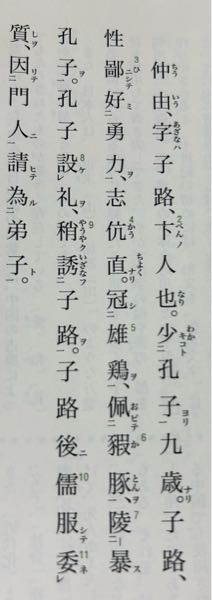 仲由、字子路、卞人也。少孔子九歳。子路、
性鄙好勇力、志伉直。冠雄鶏、佩豭豚、陵暴
孔子。孔子設礼、稍誘子路。子路後儒服委
質、因門人請為弟子。